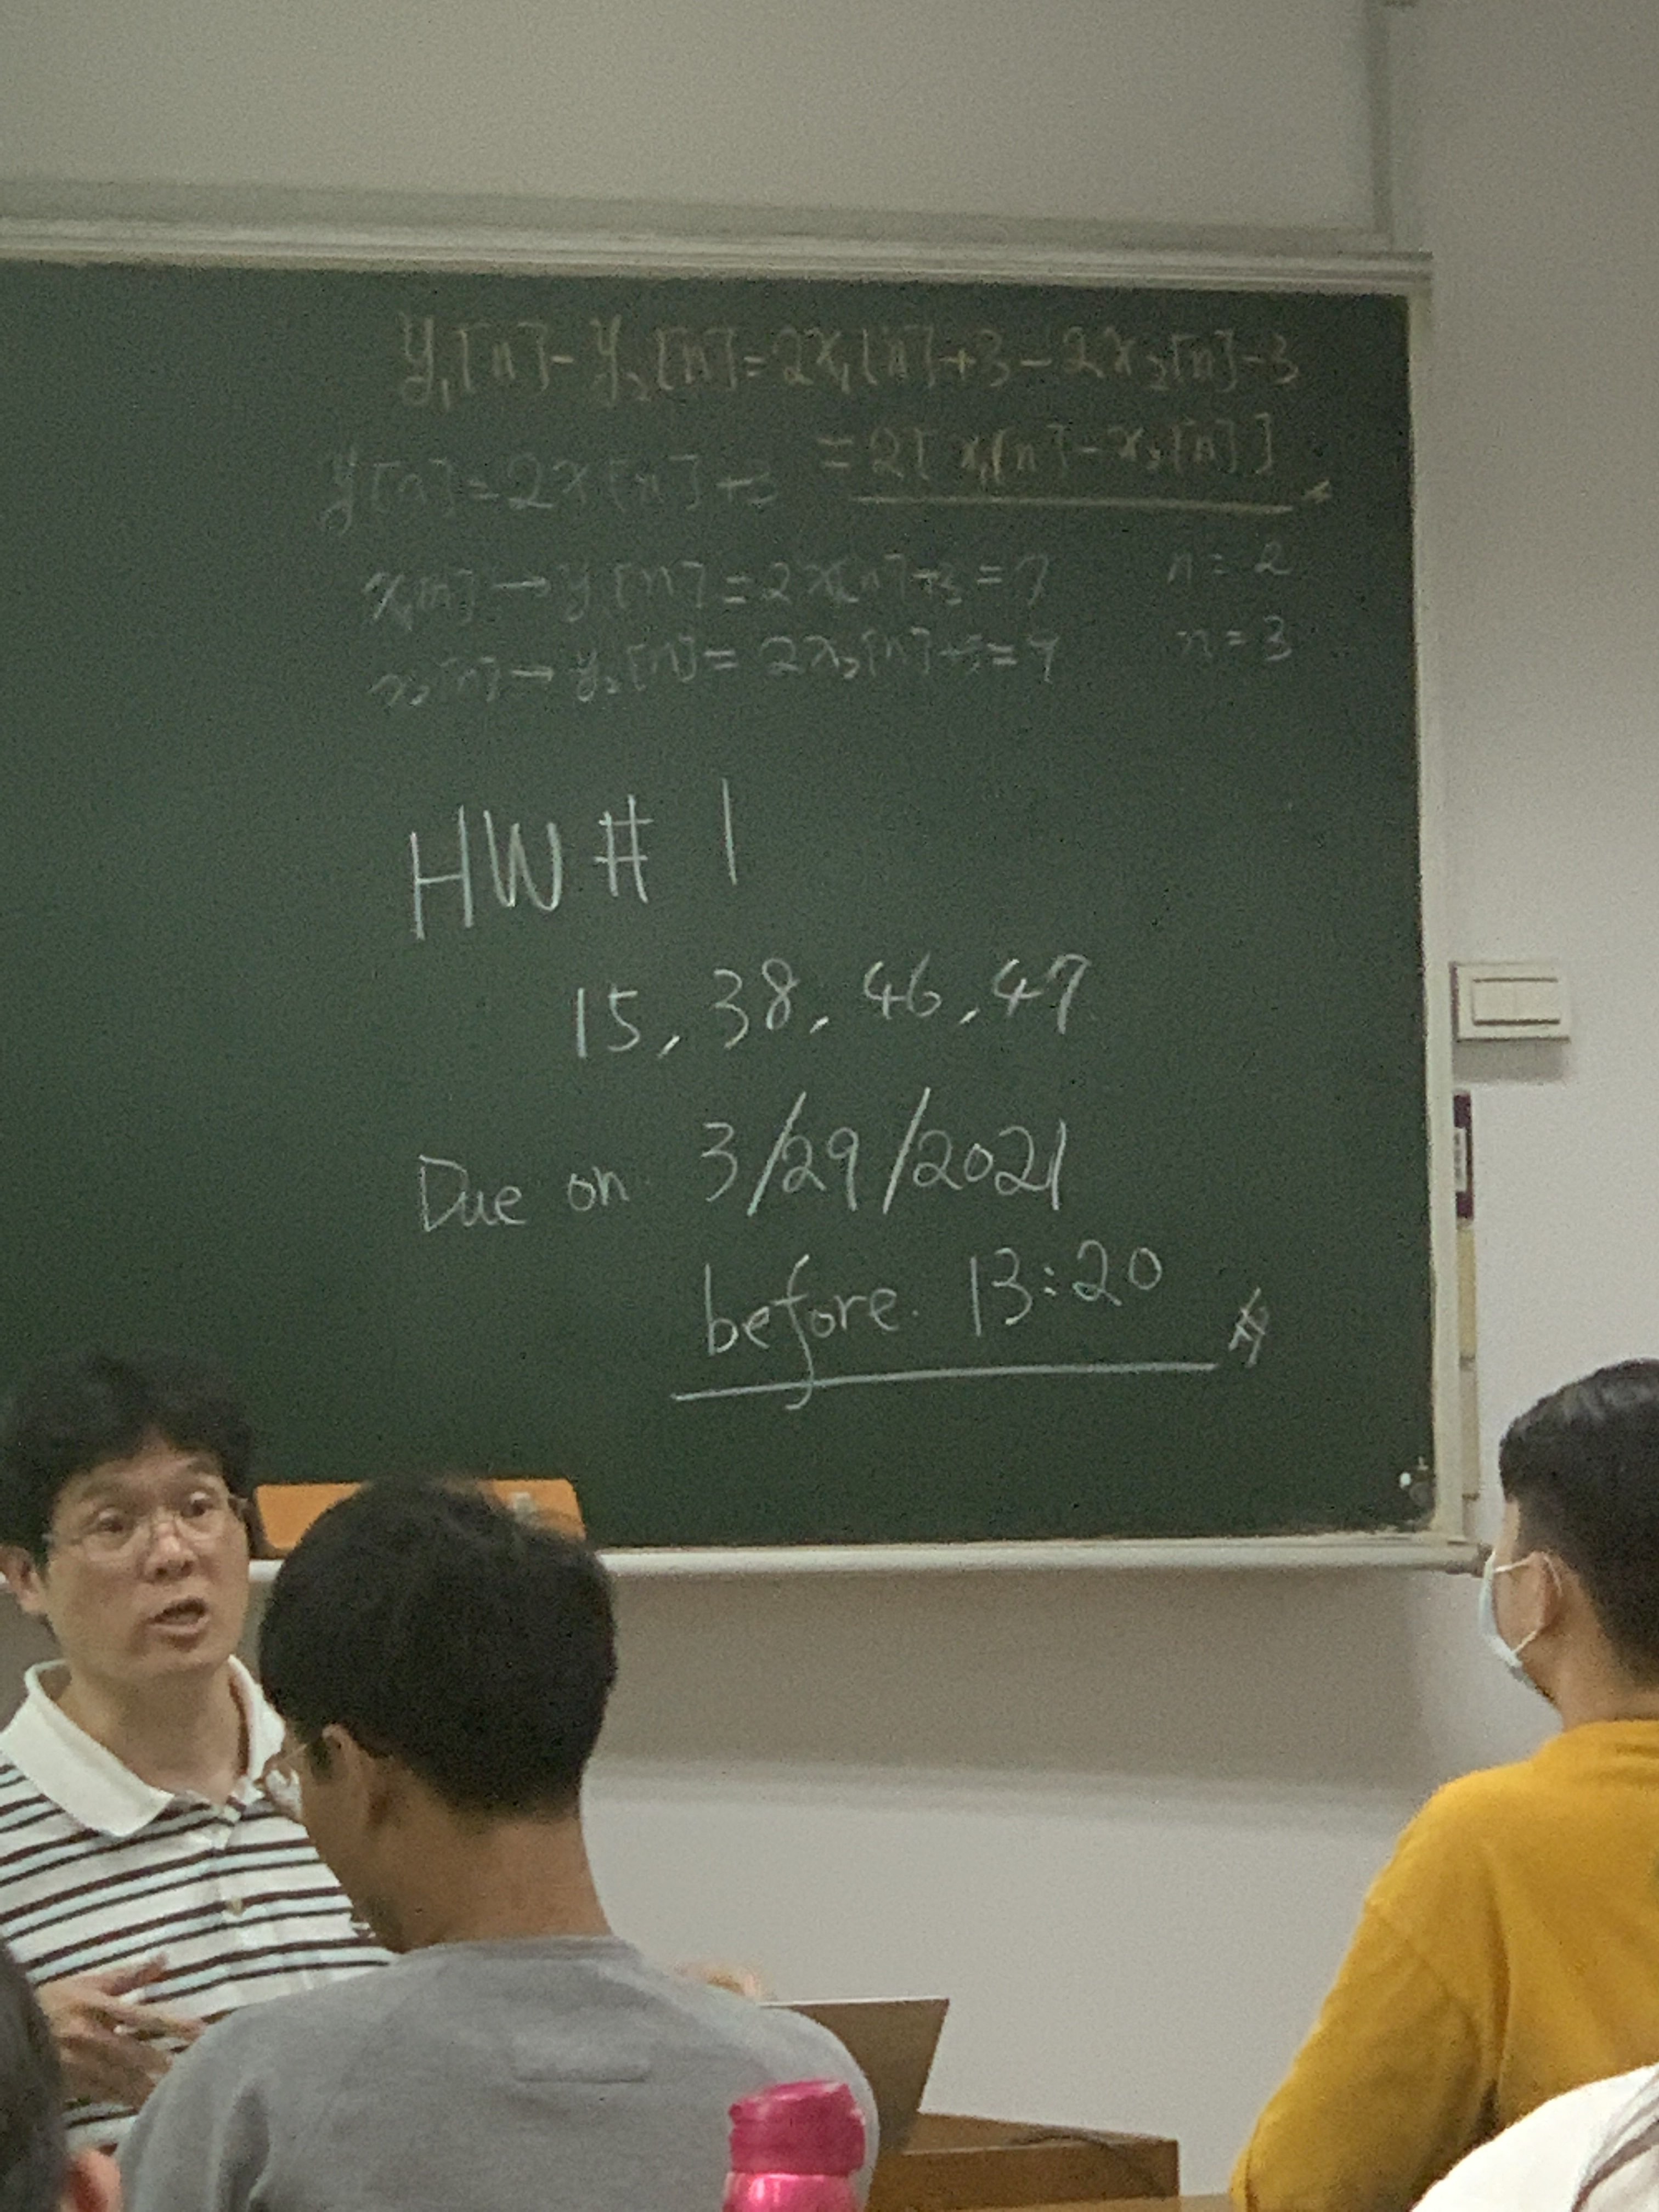 y₁[n]-y₂[n]=2x₁[n]+3-2x₂[n]-3
=2[x₁[n]-x₂[n]]
y[n]=2x[n]+3
x₁[n]→y₁[n]=2x₁[n]+3=7 n=2
x₂[n]→y₂[n]=2x₂[n]+3= n=3
HW # 1
15, 38, 46, 47
Due on 3/29/2021
before 13:20